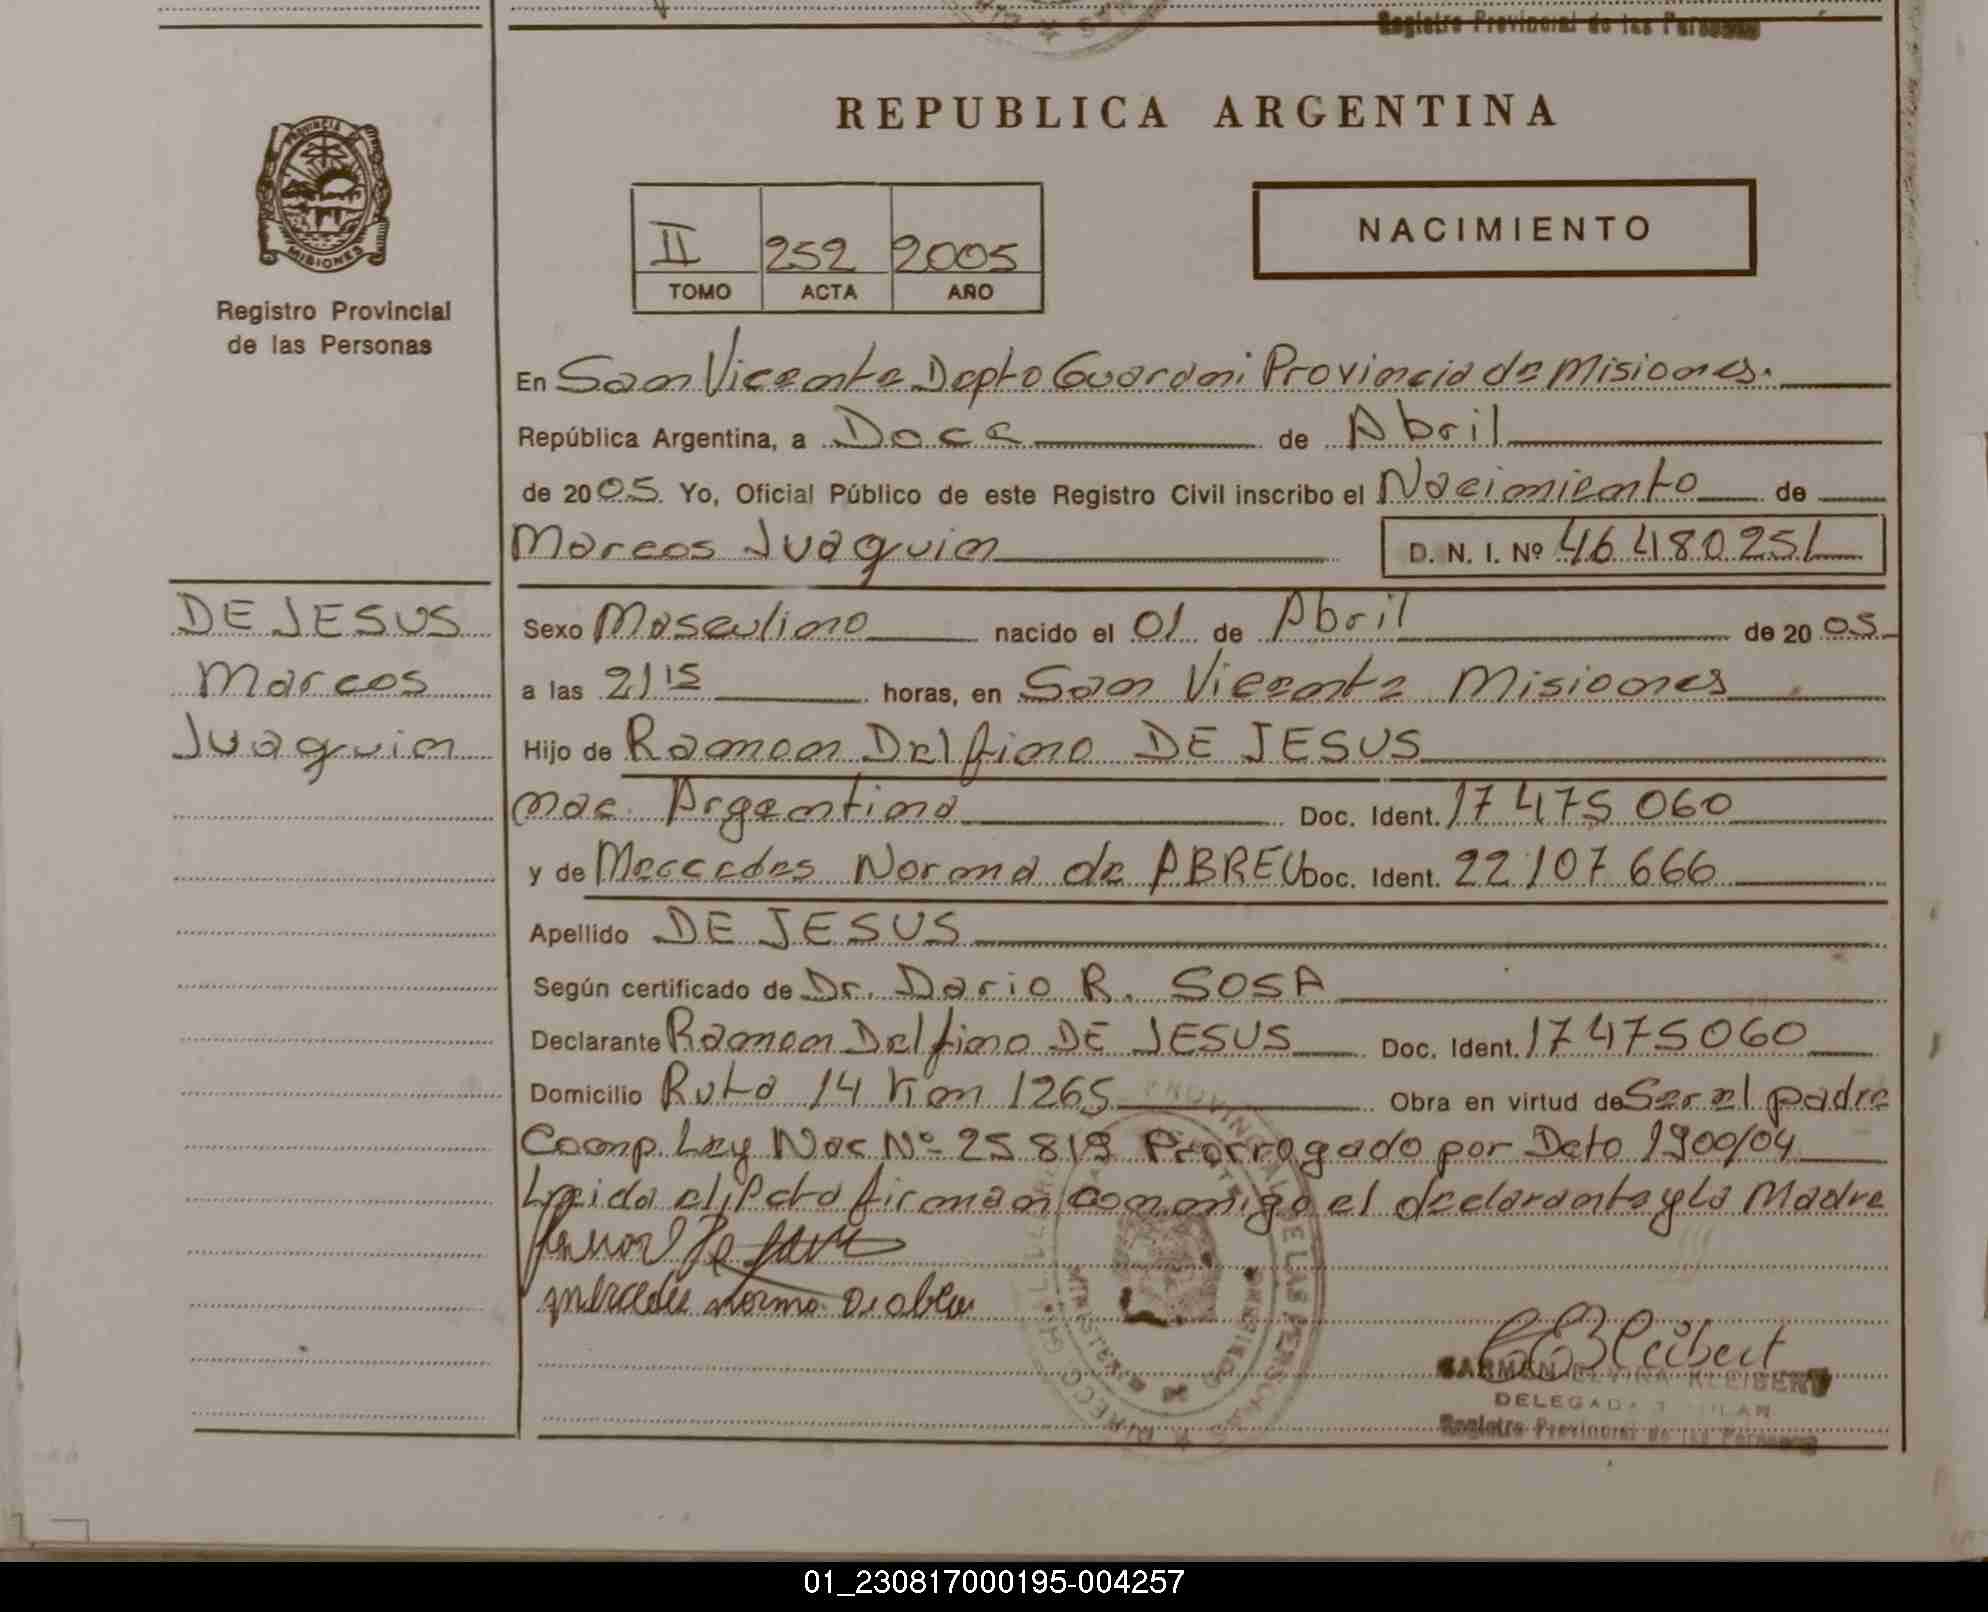 Registro Provincial de las Personas
REPUBLICA ARGENTINA
PROVINCIA DE
MISIONES
Registro Provincial
de las Personas
II 252 2005
TOMO ACTA AÑO
NACIMIENTO
En San Vicente Depto Guarani Provincia de Misiones.
República Argentina, a Doce de Abril
de 2005. Yo, Oficial Público de este Registro Civil inscribo el Nacimiento de
Marcos Juaquin D. N. I. Nº 46480251
DE JESUS
Marcos
Juaquin
Sexo Masculino nacido el 01 de Abril de 2005
a las 21 15 horas, en San Vicente Misiones
Hijo de Ramon Delfino DE JESUS
nac. Argentina Doc. Ident. 17 475 060
y de Mercedes Norma de ABREU Doc. Ident. 22 107 666
Apellido DE JESUS
Según certificado de Dr. Dario R. SOSA
Declarante Ramon Delfino DE JESUS Doc. Ident. 17 475 060
Domicilio Ruta 14 Km 1265 Obra en virtud de Ser el padre
Comp. Ley Nac Nº 25 819 Prorrogado por Dcto 1900/04
Leida el Acta firman conmigo el declarante y la Madre
mercedes norma De abreu
CARMEN ELVIRA KLEIBERT
DELEGADA
Registro Provincial de las Personas
01_230817000195-004257